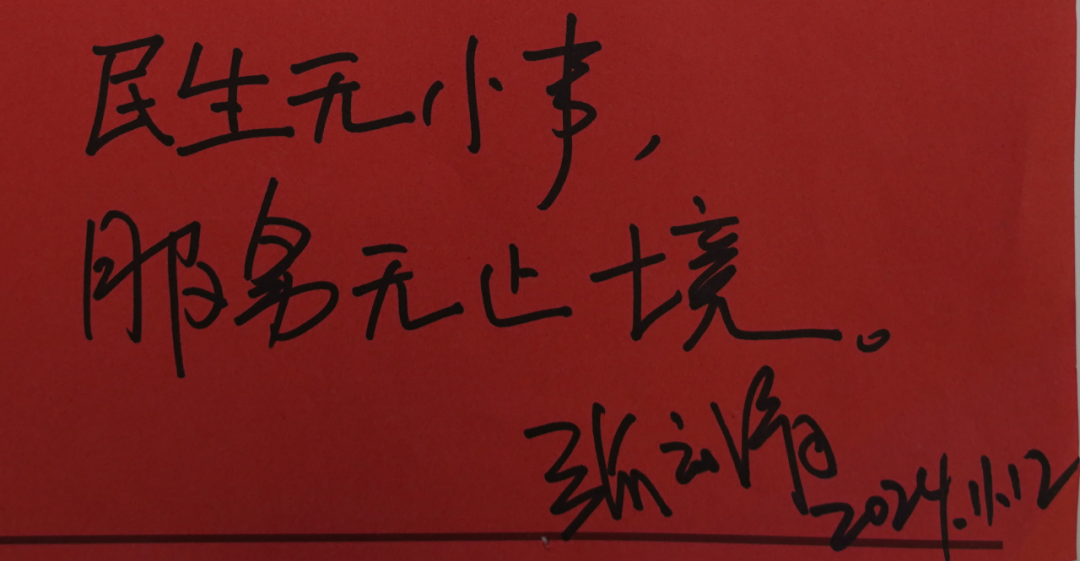 民生无小事，
服务无止境。
张 2024.11.12